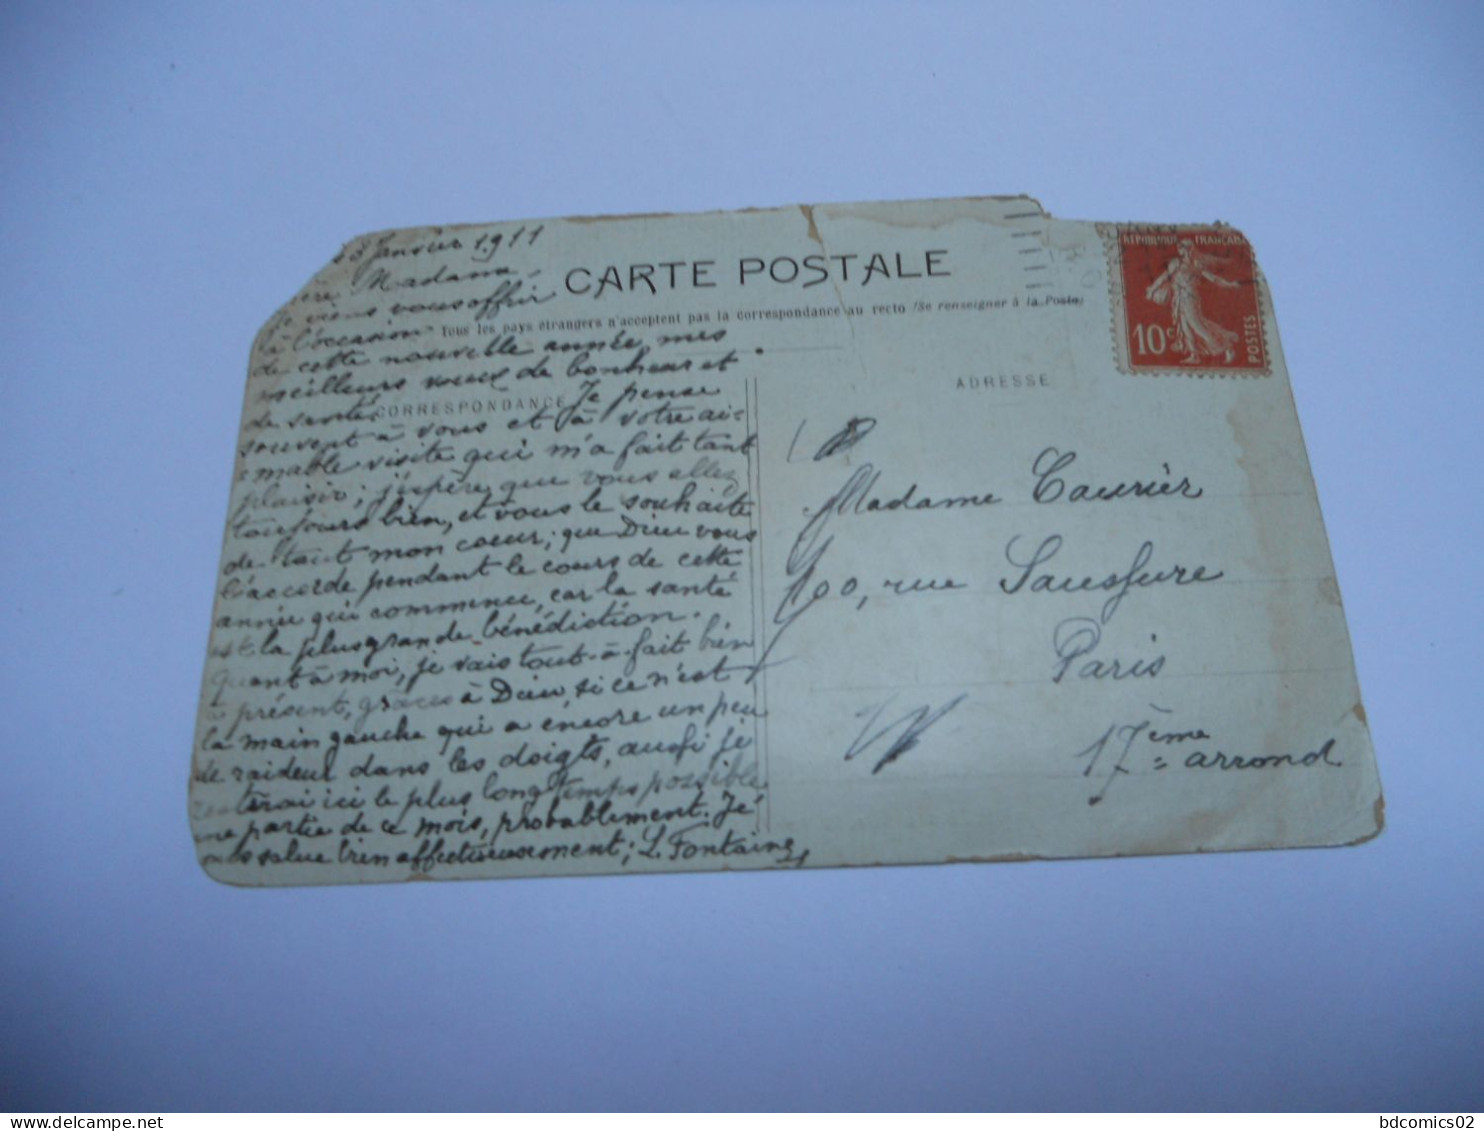 3 Janvier 1911
Madame,
je viens vous offrir
à l'occasion
de cette nouvelle année, mes
meilleurs vœux de bonheur et
de santé. Je pense
souvent à vous et à votre ai-
mable visite qui m'a fait tant
plaisir; j'espère que vous allez
toujours bien, et vous le souhaite
de tout mon cœur; que Dieu vous
l'accorde pendant le cours de cette
année qui commence, car la santé
est la plus grande bénédiction.
quant à moi, je vais tout-à-fait bien
à présent, grâces à Dieu, si ce n'est
la main gauche qui a encore un peu
de raideur dans les doigts, aussi je
resterai ici le plus longtemps possible
une partie de ce mois, probablement. Je
vous salue bien affectueusement; L. Fontaine
CARTE POSTALE
Tous les pays étrangers n'acceptent pas la correspondance au recto (Se renseigner à la Poste)
CORRESPONDANCE
ADRESSE
RÉPUBLIQUE FRANÇAISE
10c
POSTES
Madame Caurier
100, rue Saussure
Paris
17ème arrond
bdcomics02